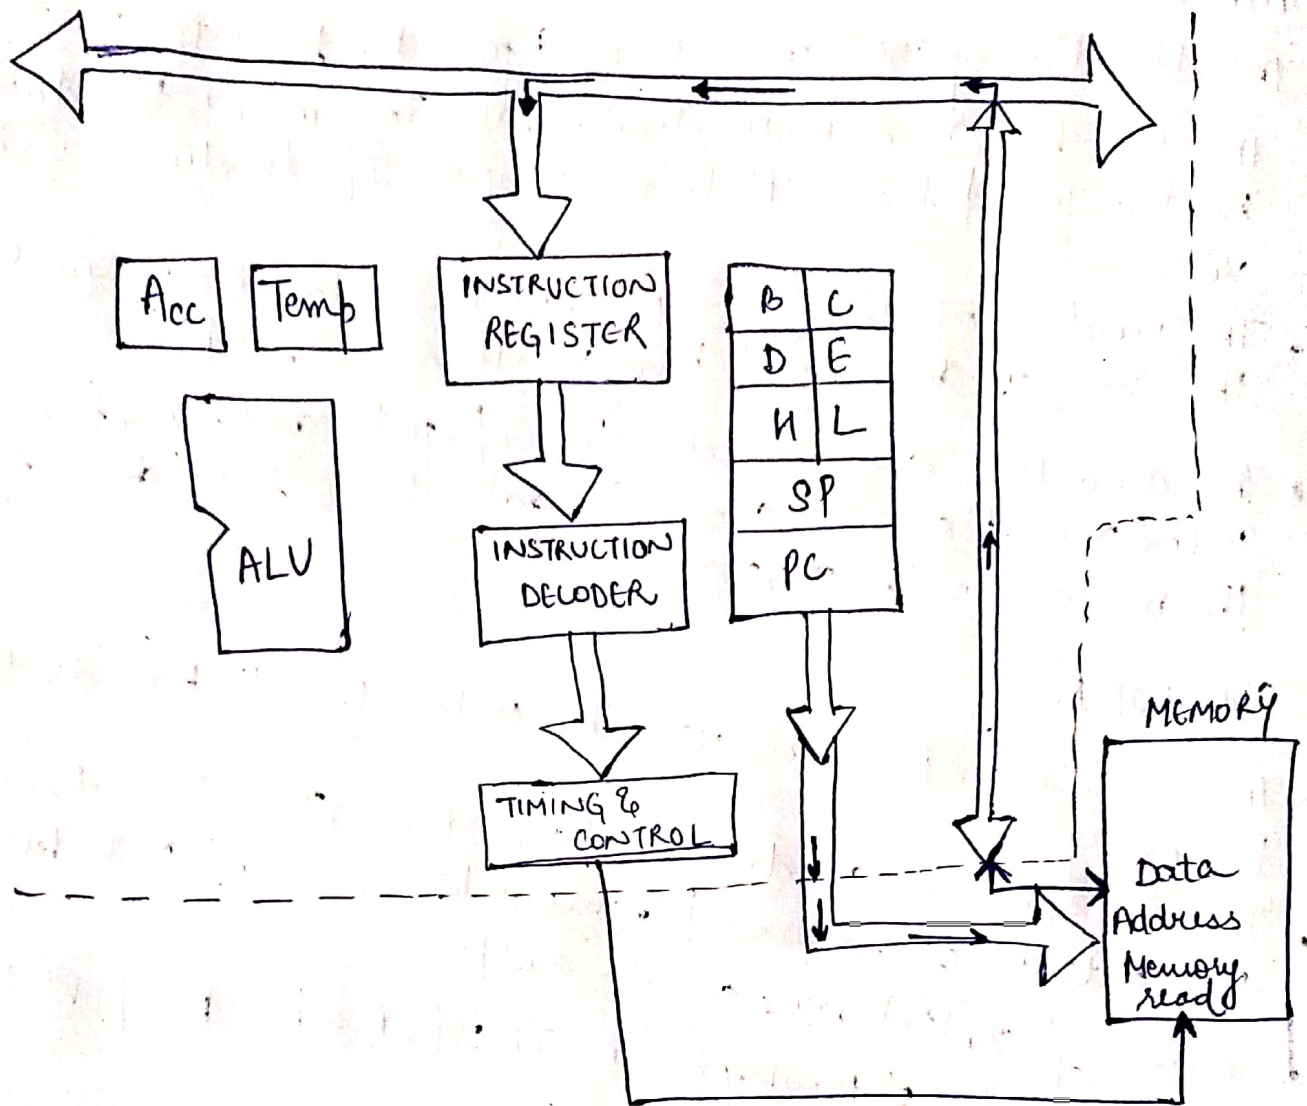 Acc
Temp
INSTRUCTION
REGISTER
B C
D E
H L
SP
PC
ALU
INSTRUCTION
DECODER
TIMING &
CONTROL
MEMORY
Data
Address
Memory
read